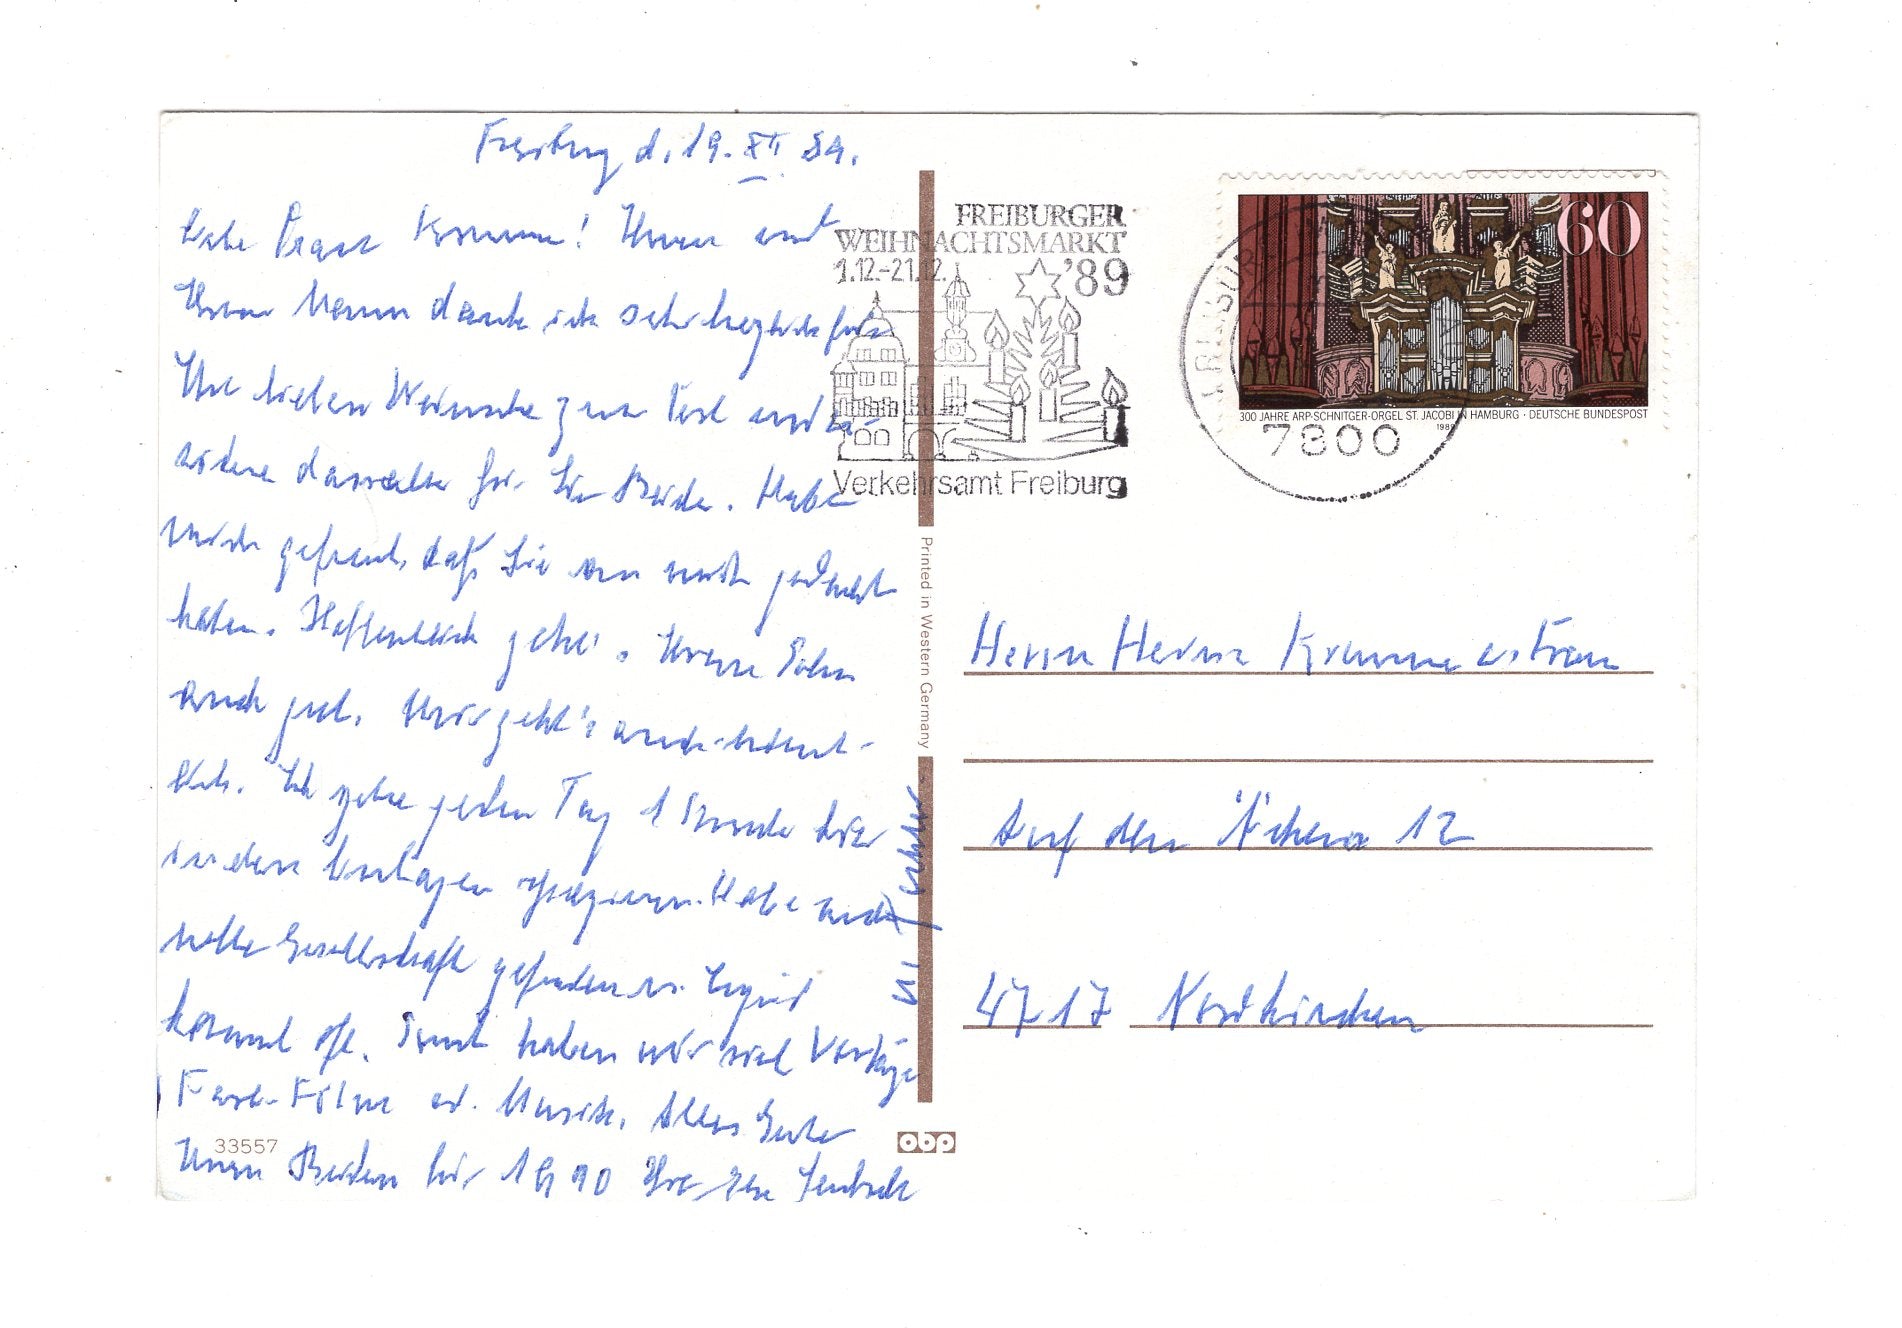 Freiburg d. 19. XII 89.
Liebe Frau Krumme! Ihnen und
Ihrem Mann danke ich sehr herzlich für
Ihre lieben Wünsche zum Fest und
dasselbe für Sie Beide. Habe
mich gefreut, daß Sie an mich gedacht
haben. Hoffentlich geht's Ihrem Sohn
auch gut. Mir geht's auch ordent-
lich. Ich gehe jeden Tag 1 Stunde hier
in den Anlagen spazieren. Habe auch
nette Gesellschaft gefunden u.
kommt oft. Sonst haben wir viel Vorträge
Farb-Filme od. Musik. Alles Gute
Ihnen Beiden für 1990 Ihre
33557
FREIBURGER
WEIHNACHTSMARKT
1.12.-21.12. '89
Verkehrsamt Freiburg
60
300 JAHRE ARP-SCHNITGER-ORGEL ST. JACOBI IN HAMBURG · DEUTSCHE BUNDESPOST
1989
7800
Printed in Western Germany
obp
Herrn Herm. Krumme u. Frau
Auf den Äckern 12
4717 Nordkirchen